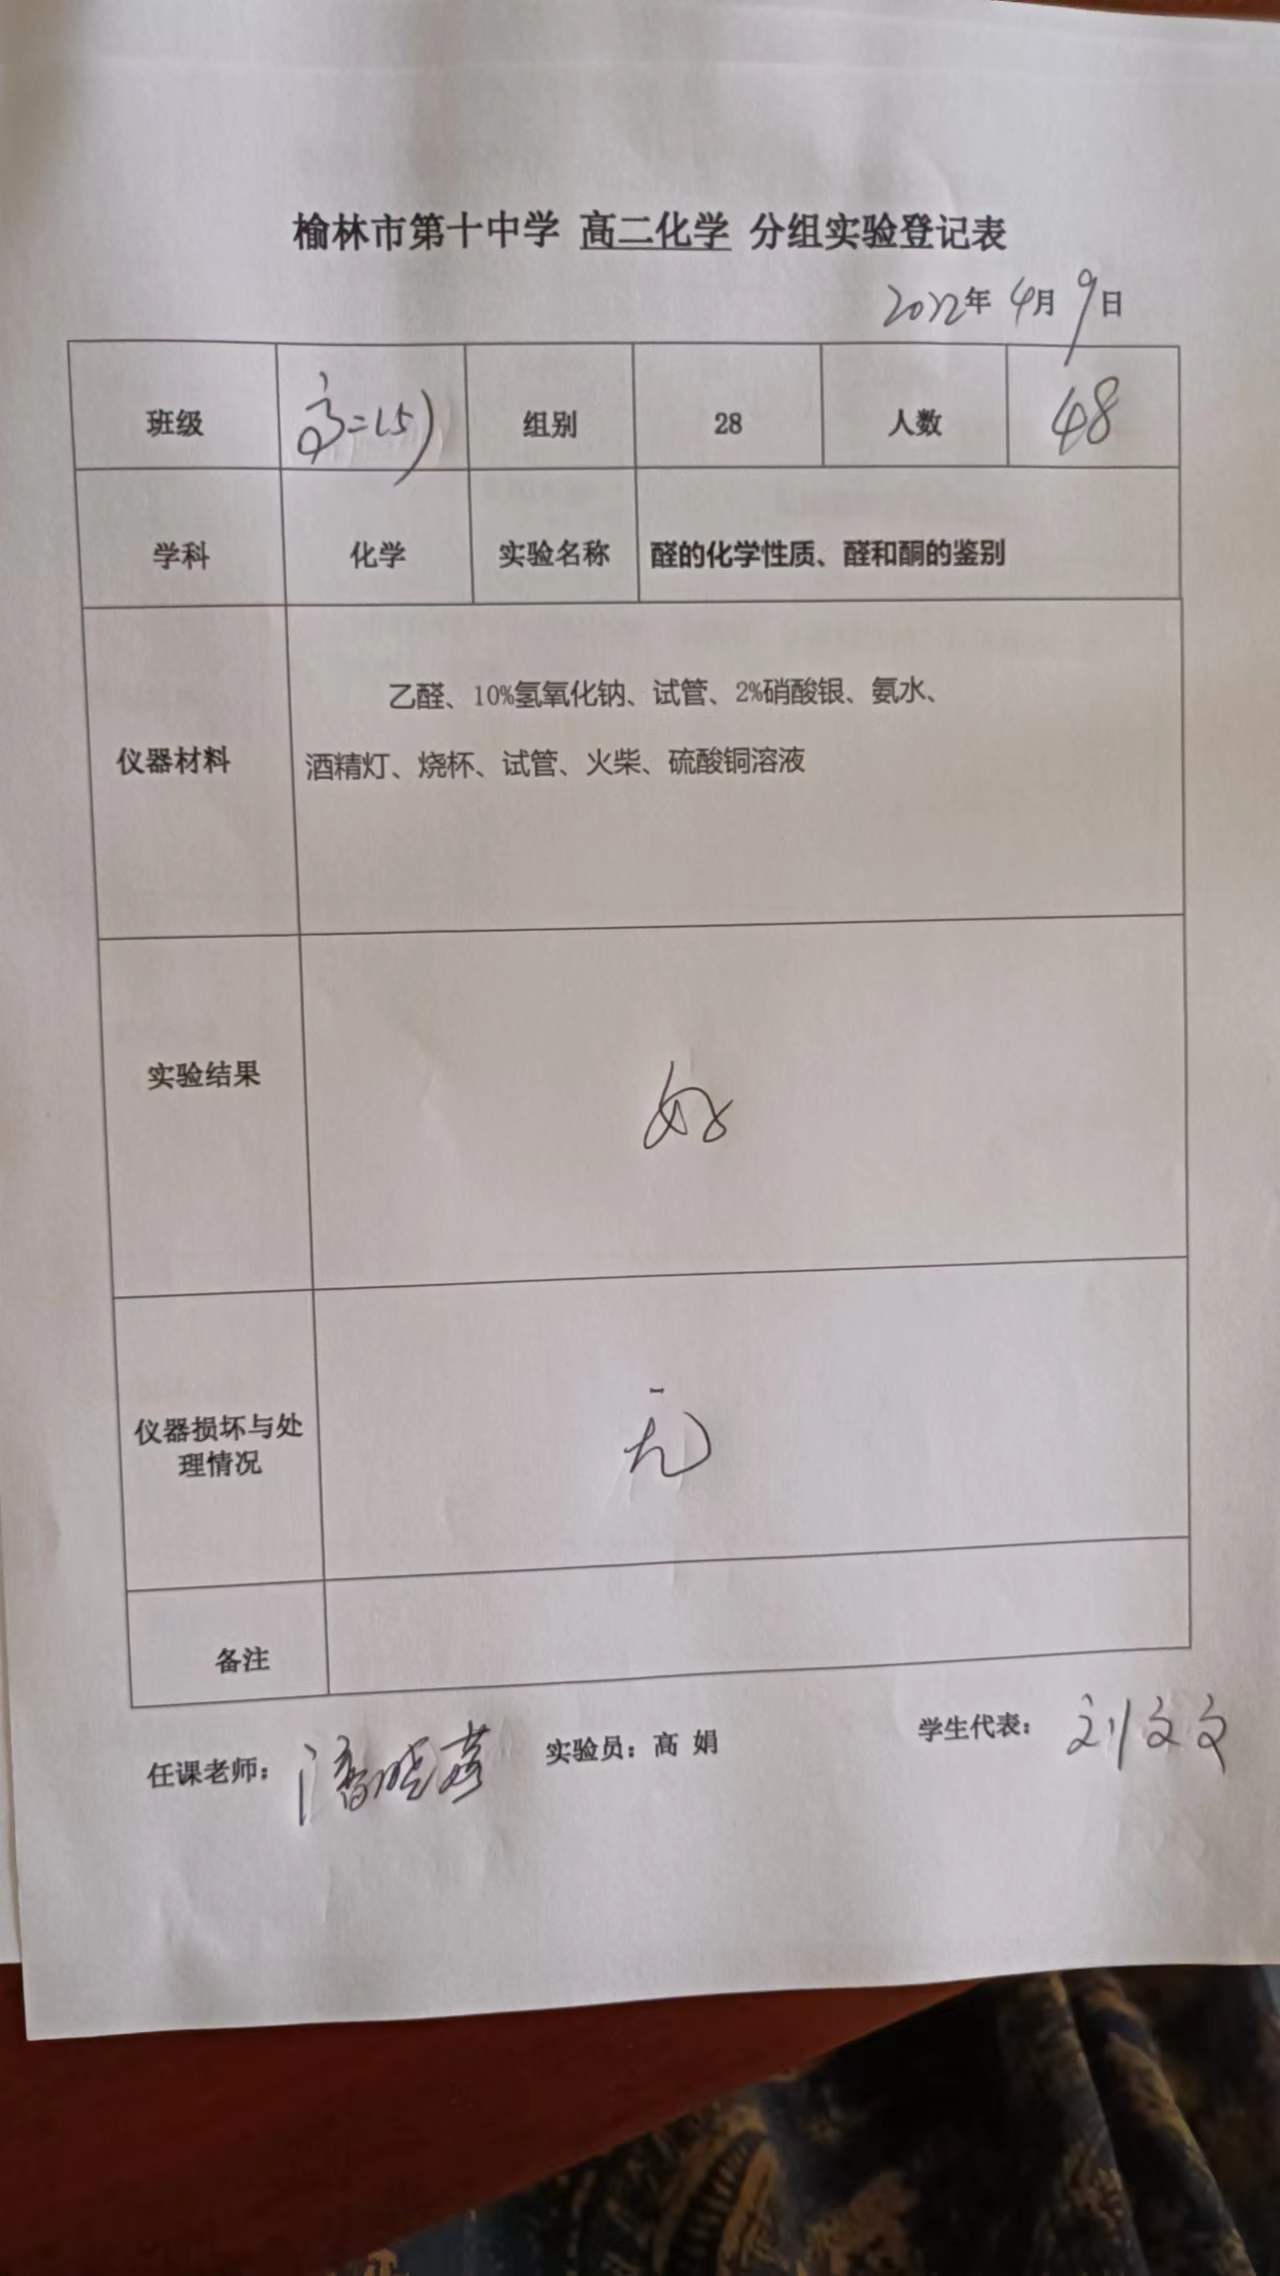 榆林市第十中学 高二化学 分组实验登记表
2022年 4月 9日
班级 高二(5) 组别 28 人数 48
学科 化学 实验名称 醛的化学性质、醛和酮的鉴别
仪器材料
乙醛、10%氢氧化钠、试管、2%硝酸银、氨水、
酒精灯、烧杯、试管、火柴、硫酸铜溶液
实验结果 好
仪器损坏与处
理情况
无
备注
任课老师: 潘晓 实验员: 高 娟 学生代表: 刘文文